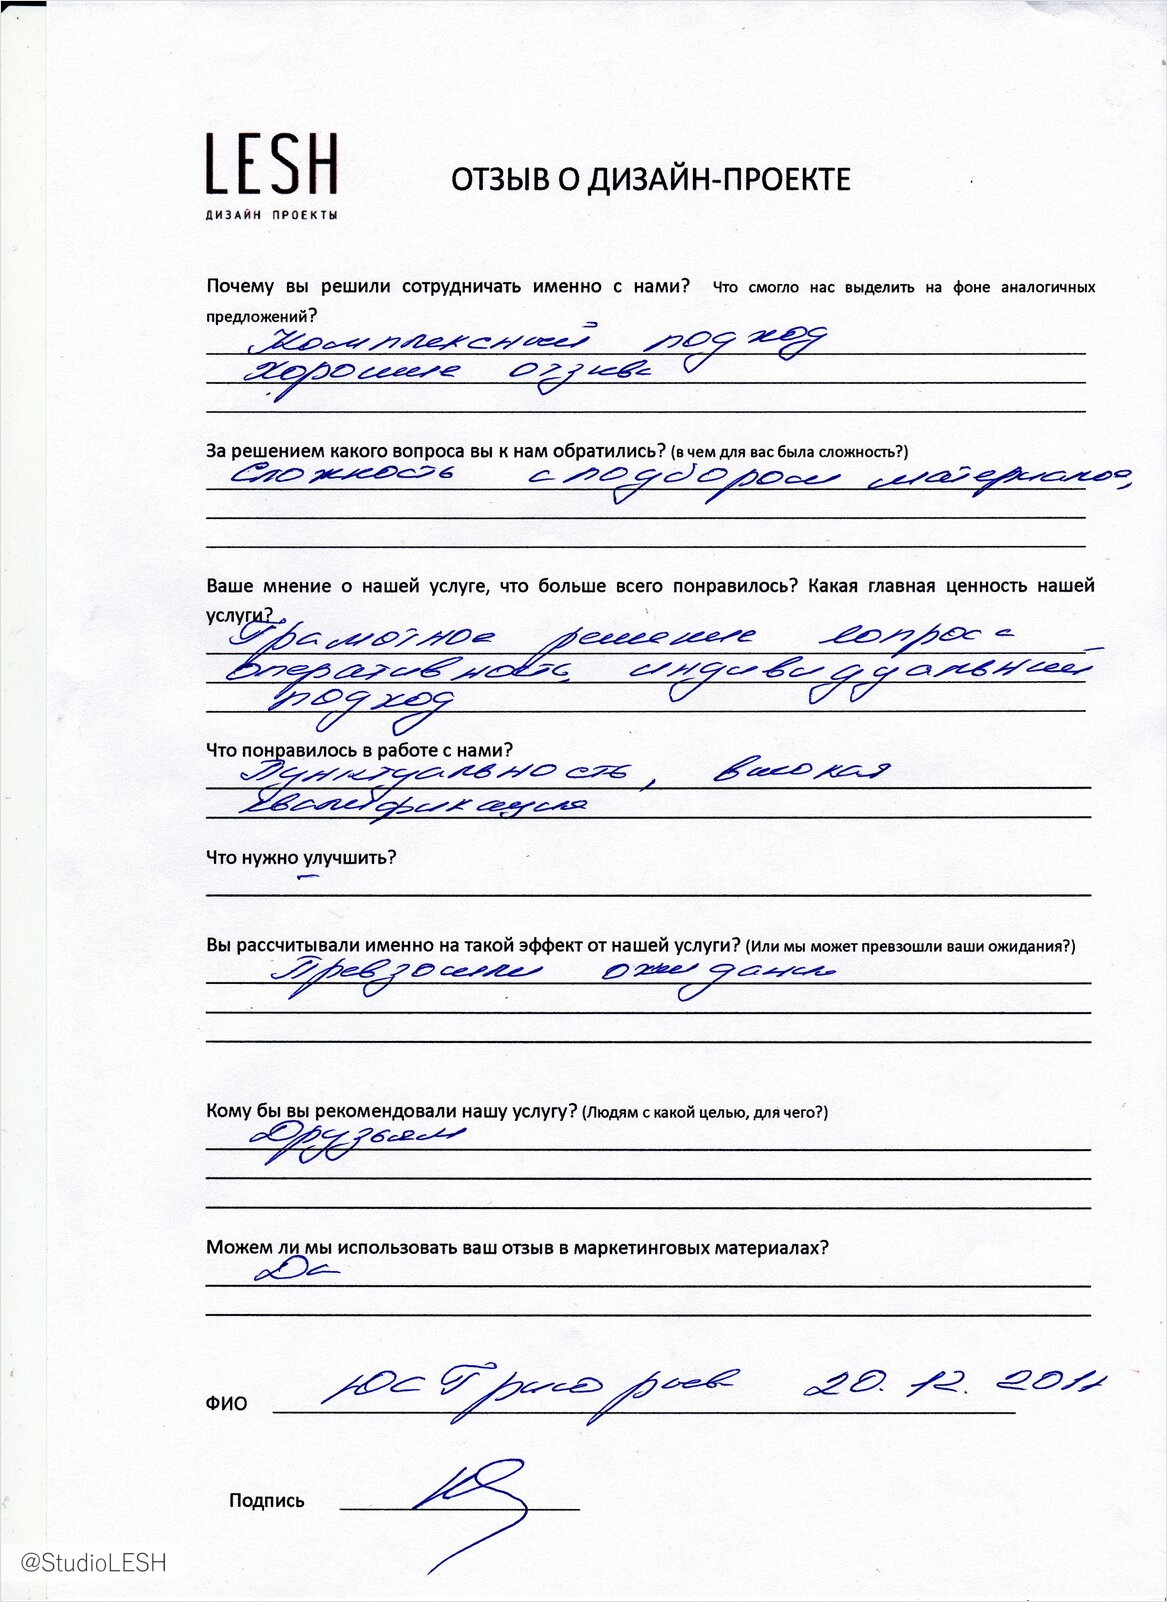 LESH
ДИЗАЙН ПРОЕКТЫ
ОТЗЫВ О ДИЗАЙН-ПРОЕКТЕ
Почему вы решили сотрудничать именно с нами? Что смогло нас выделить на фоне аналогичных
предложений?
Комплексный подход
Хорошие отзывы
За решением какого вопроса вы к нам обратились? (в чем для вас была сложность?)
Сложность с подбором материалов,
Ваше мнение о нашей услуге, что больше всего понравилось? Какая главная ценность нашей
услуги?
Грамотное решение вопроса
оперативность, индивидуальный
подход
Что понравилось в работе с нами?
Пунктуальность, высокая
квалификация
Что нужно улучшить?
–
Вы рассчитывали именно на такой эффект от нашей услуги? (Или мы может превзошли ваши ожидания?)
Превзошли ожидания
Кому бы вы рекомендовали нашу услугу? (Людям с какой целью, для чего?)
Друзьям
Можем ли мы использовать ваш отзыв в маркетинговых материалах?
Да
ФИО Григорьев 20.12.2011
Подпись
@StudioLESH